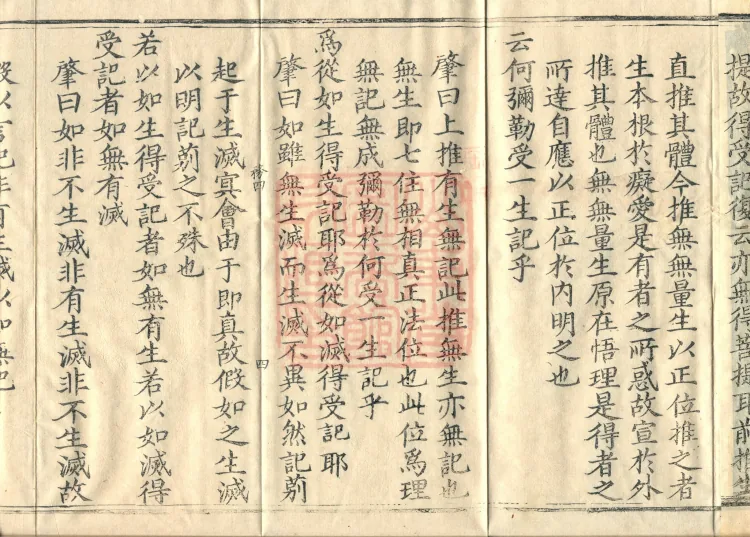 提故得受記復云亦無得菩提耶前推生
直推其體今推無無量生以正位推之者
生本根於癡愛是有者之所惑故宣於外
推其體也無無量生原在悟理是得者之
所達自應以正位於內明之也
云何彌勒受一生記乎
肇曰上推有生無記此推無生亦無記也
無生即七住無相真正法位也此位爲理
無記無成彌勒於何受一生記乎
爲從如生得受記耶爲從如滅得受記耶
肇曰如雖無生滅而生滅不異如然記莂
起于生滅冥會由于即真故假如之生滅
以明記莂之不殊也
若以如生得受記者如無有生若以如滅得
受記者如無有滅
肇曰如非不生滅非有生滅非不生滅故
假以言記非有生滅以知無記
四